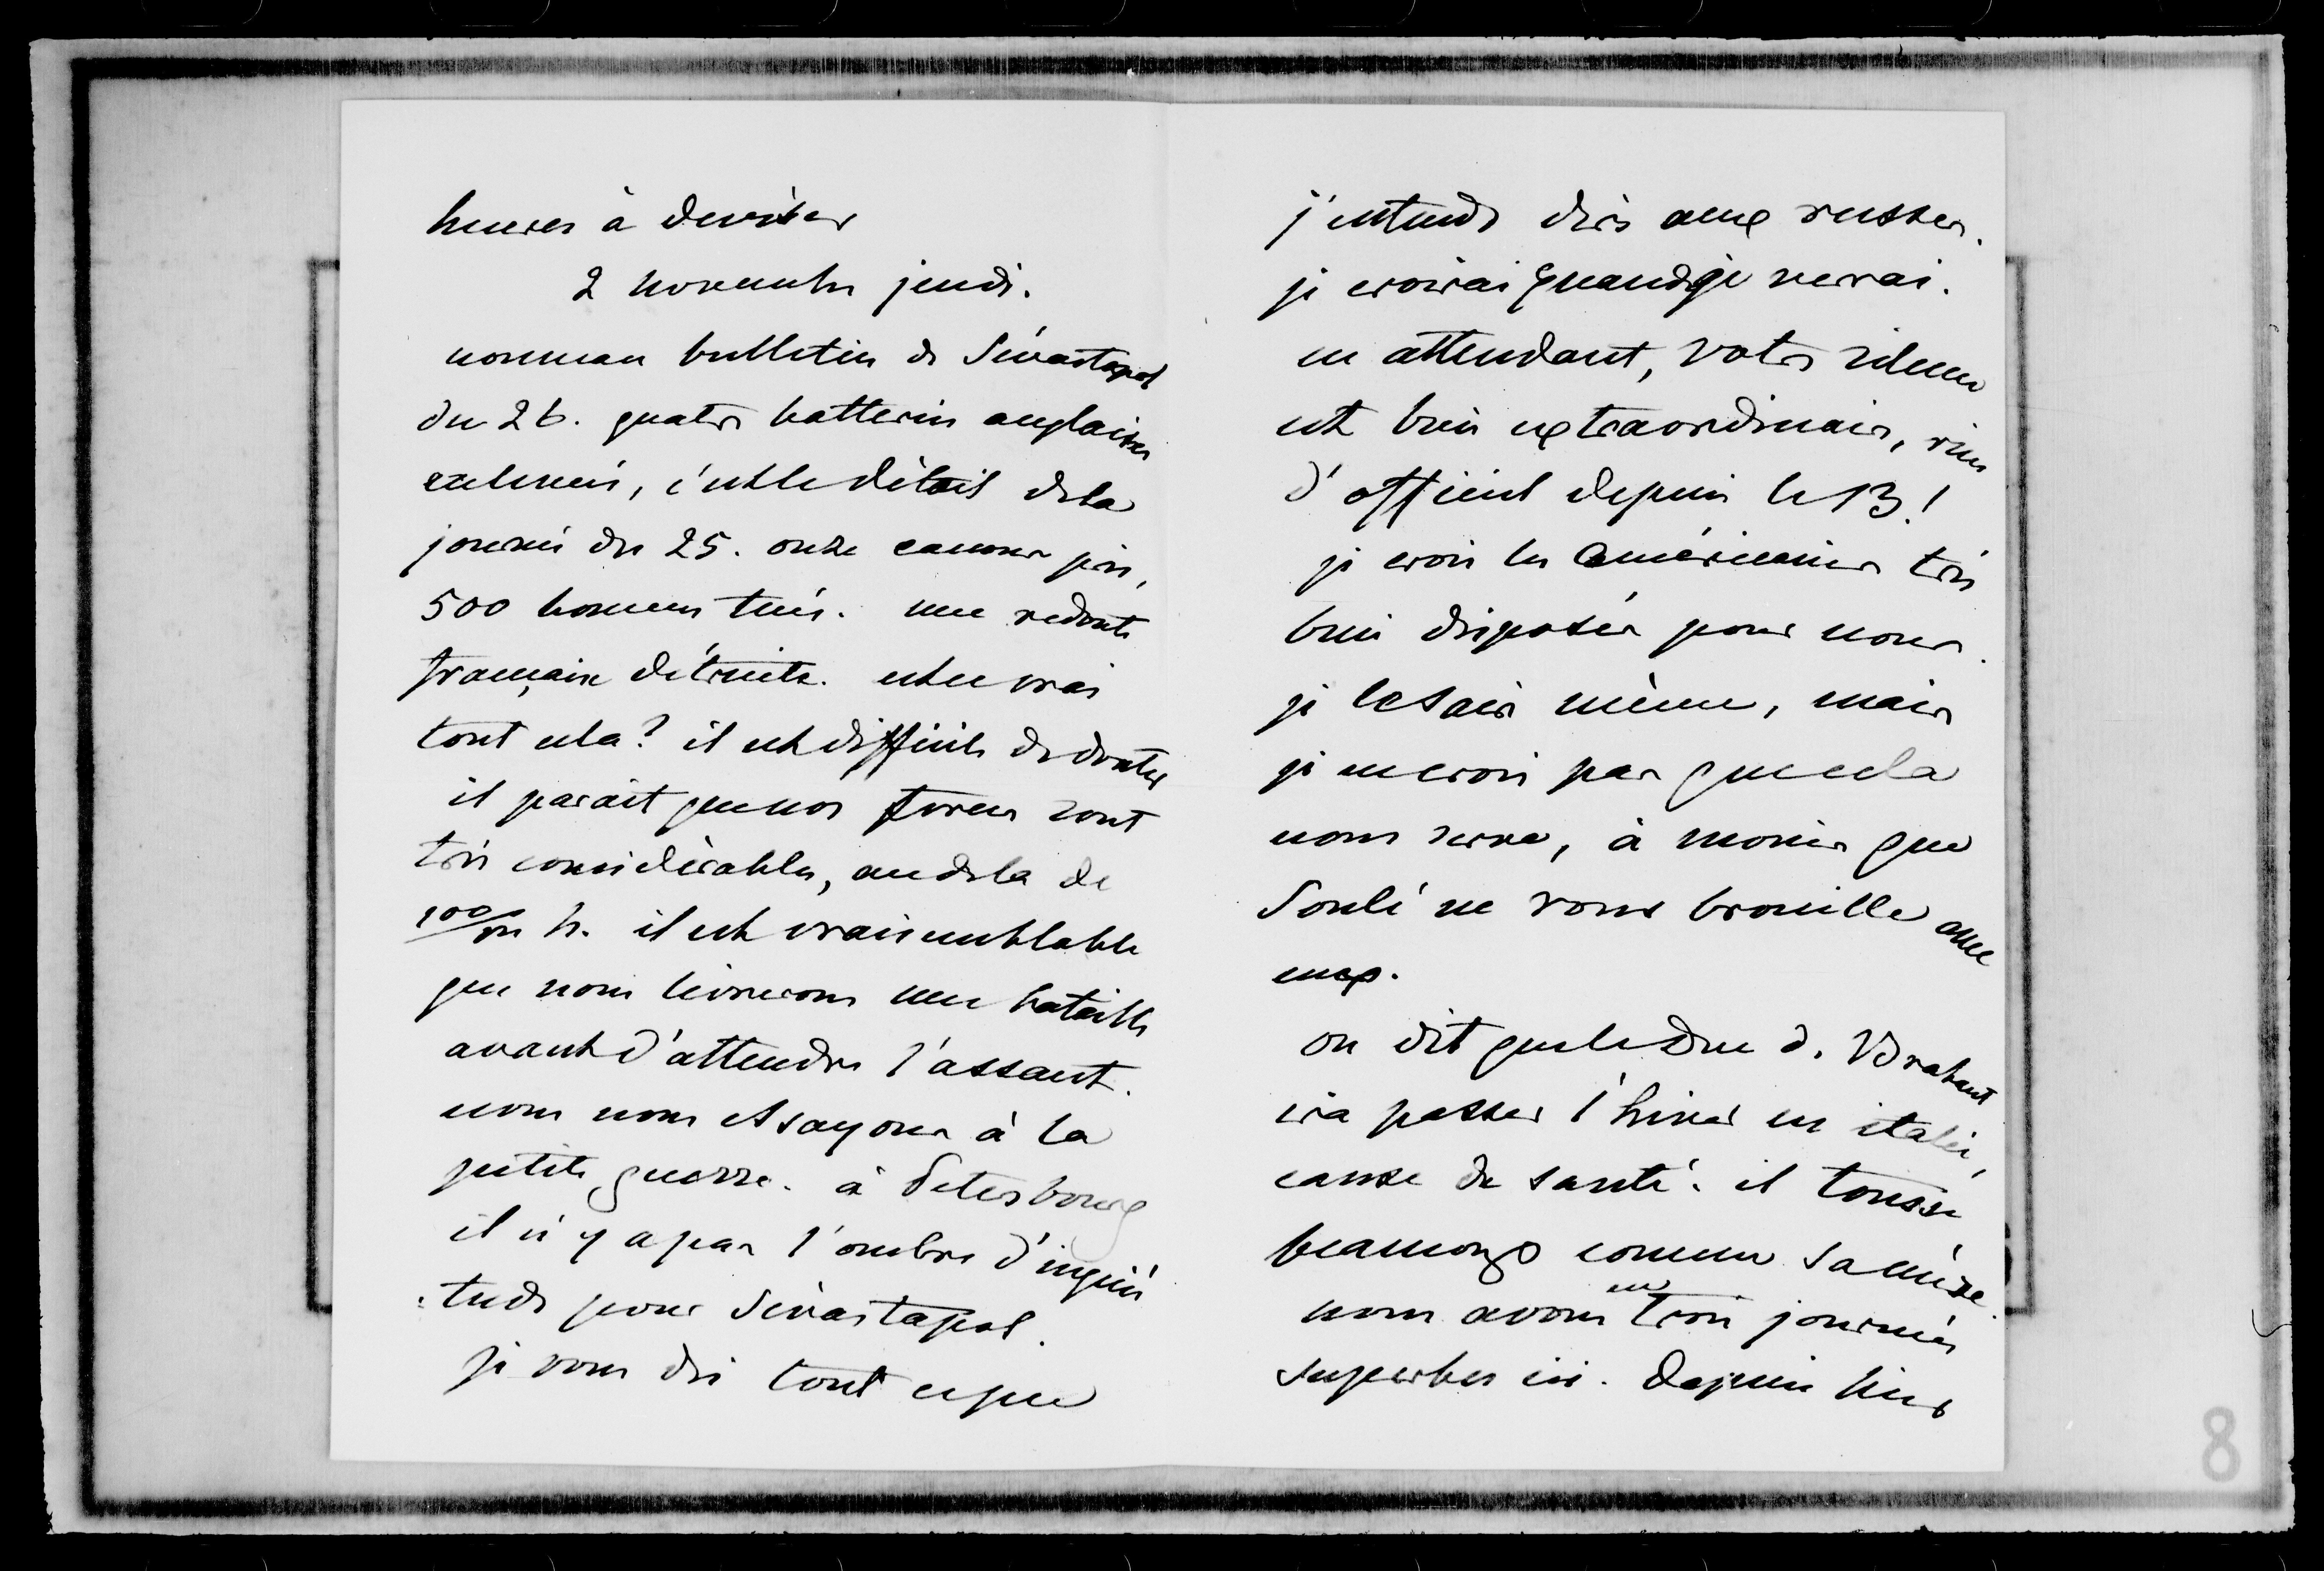 heures à deviser
2 novembre jeudi.
nouveau bulletin de Sévastopol
du 26. quatre batteries anglaises
enlevées, c'est le détail de la
journée du 25. onze canons pris,
500 hommes tués. une redoute
française détruite. est ce vrai
tout cela? il est difficile de douter
il parait que nos forces sont
très considérables, au dela de
100/m h. il est vraisemblable
que nous livrerons une bataille
avant d'attendre l'assaut.
nous nous essayons à la
petite guerre. à Petersbourg
il n'y a pas l'ombre d'inquié
:tude pour Sévastapol.
je vous dis tout ce que
j'entends dire aux russes.
je croirai quand je verrai.
en attendant, votre silence
est bien extraordinaire, rien
d'officiel depuis le 13!
je crois les américains très
bien disposés pour nous.
je le sais même, mais
je ne crois pas que cela
nous serve, à moins que
Soulé ne vous brouille avec
eux.
on dit que le Duc d. Brabant
ira passer l'hiver en italie,
cause de santé. il tousse
beaucoup comme sa mère.
nous avons eu trois journées
superbes ici. Depuis hier
8